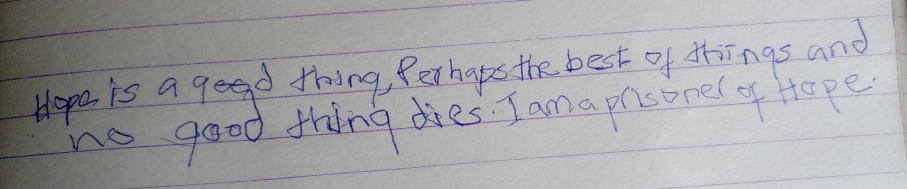 Hope is a good thing, Perhaps the best of things and
no good thing dies. I am a prisoner of Hope.